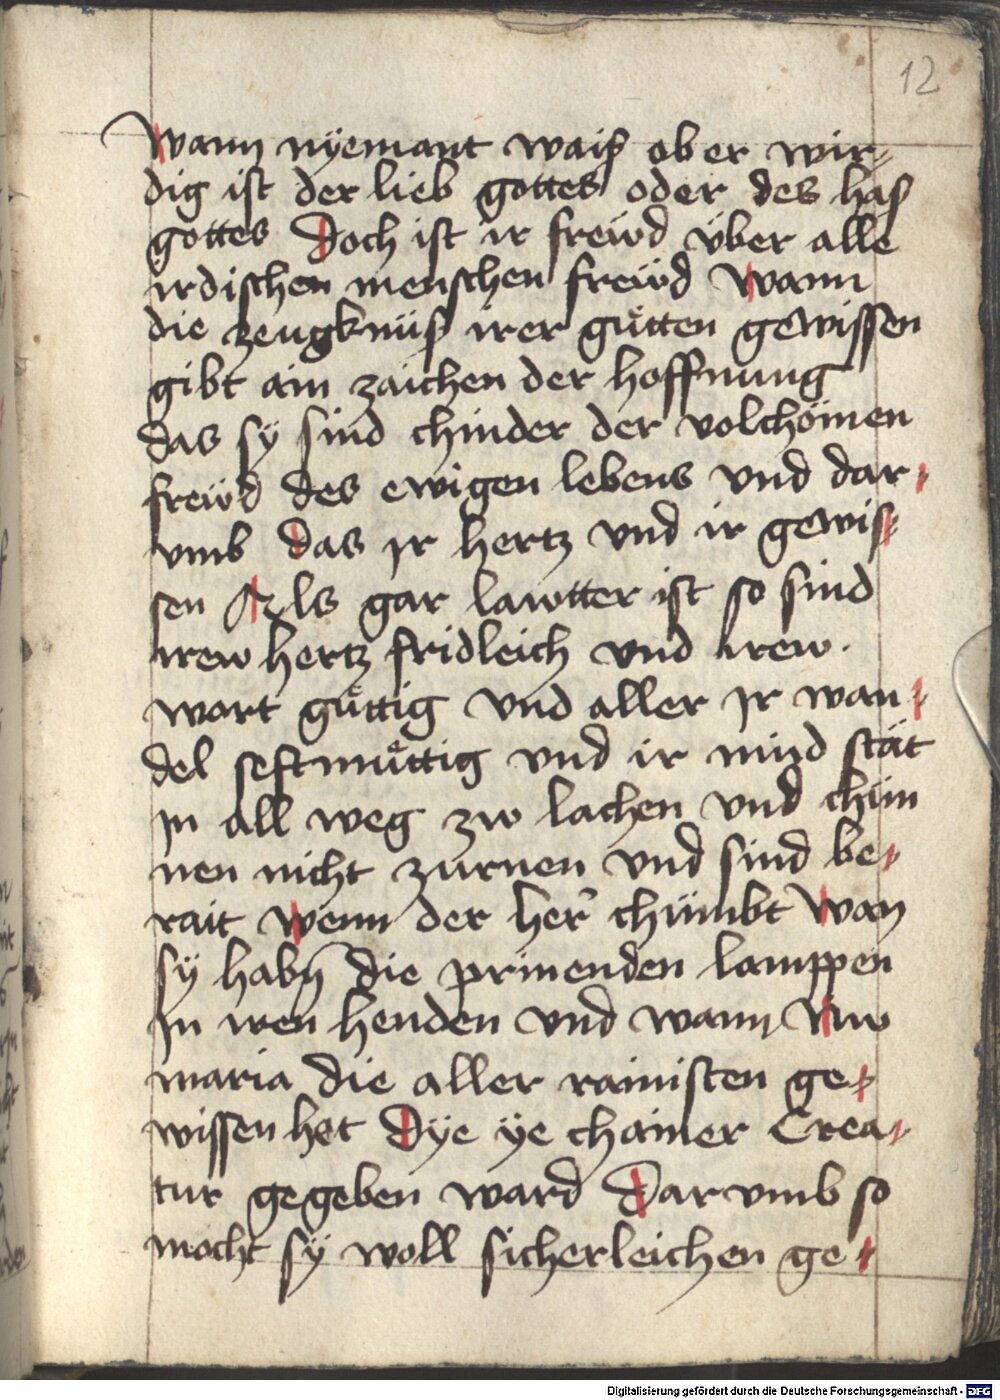 12
Wann nÿemant waiſ ob er wir-
dig ist der lieb gottes oder des haſ
gottes Doch ist ir freẅd v̈ber alle
irdischen menschen freẅd Wann
die zeugknüſ irer guͤtten gewissen
gibt ain zaichen der hoffnung
das sÿ sind chinder der volchömen
freẅd des ewigen lebens vnd dar-
vmb das Ir hertz vnd ir gewis-
sen Als gar lawtter ist so sind
irew hertz fridleich vnd irew.
wort guͤttig vnd aller Ir wan-
del seftmuͤttig vnd ir mund stät
In all weg zw lachen vnd chün
nen nicht zürnen vnd sind be-
rait Wenn der her chümbt Wan
sÿ habn̄ die prinenden lamppen
In iren henden vnd wann Nw
maria die aller rainisten ge-
wissen het Dÿe ÿe chainer Crea-
tur gegeben ward Darvmb so
mocht sÿ woll sicherleichen ge-
Digitalisierung gefördert durch die Deutsche Forschungsgemeinschaft - DFG